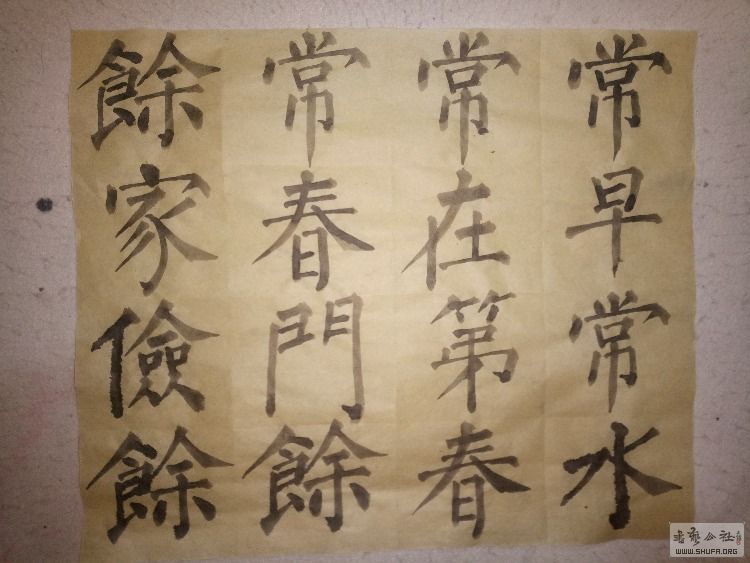 常早常水
常在第春
常春門餘
餘家儉餘
书艺公社
WWW.SHUFA.ORG